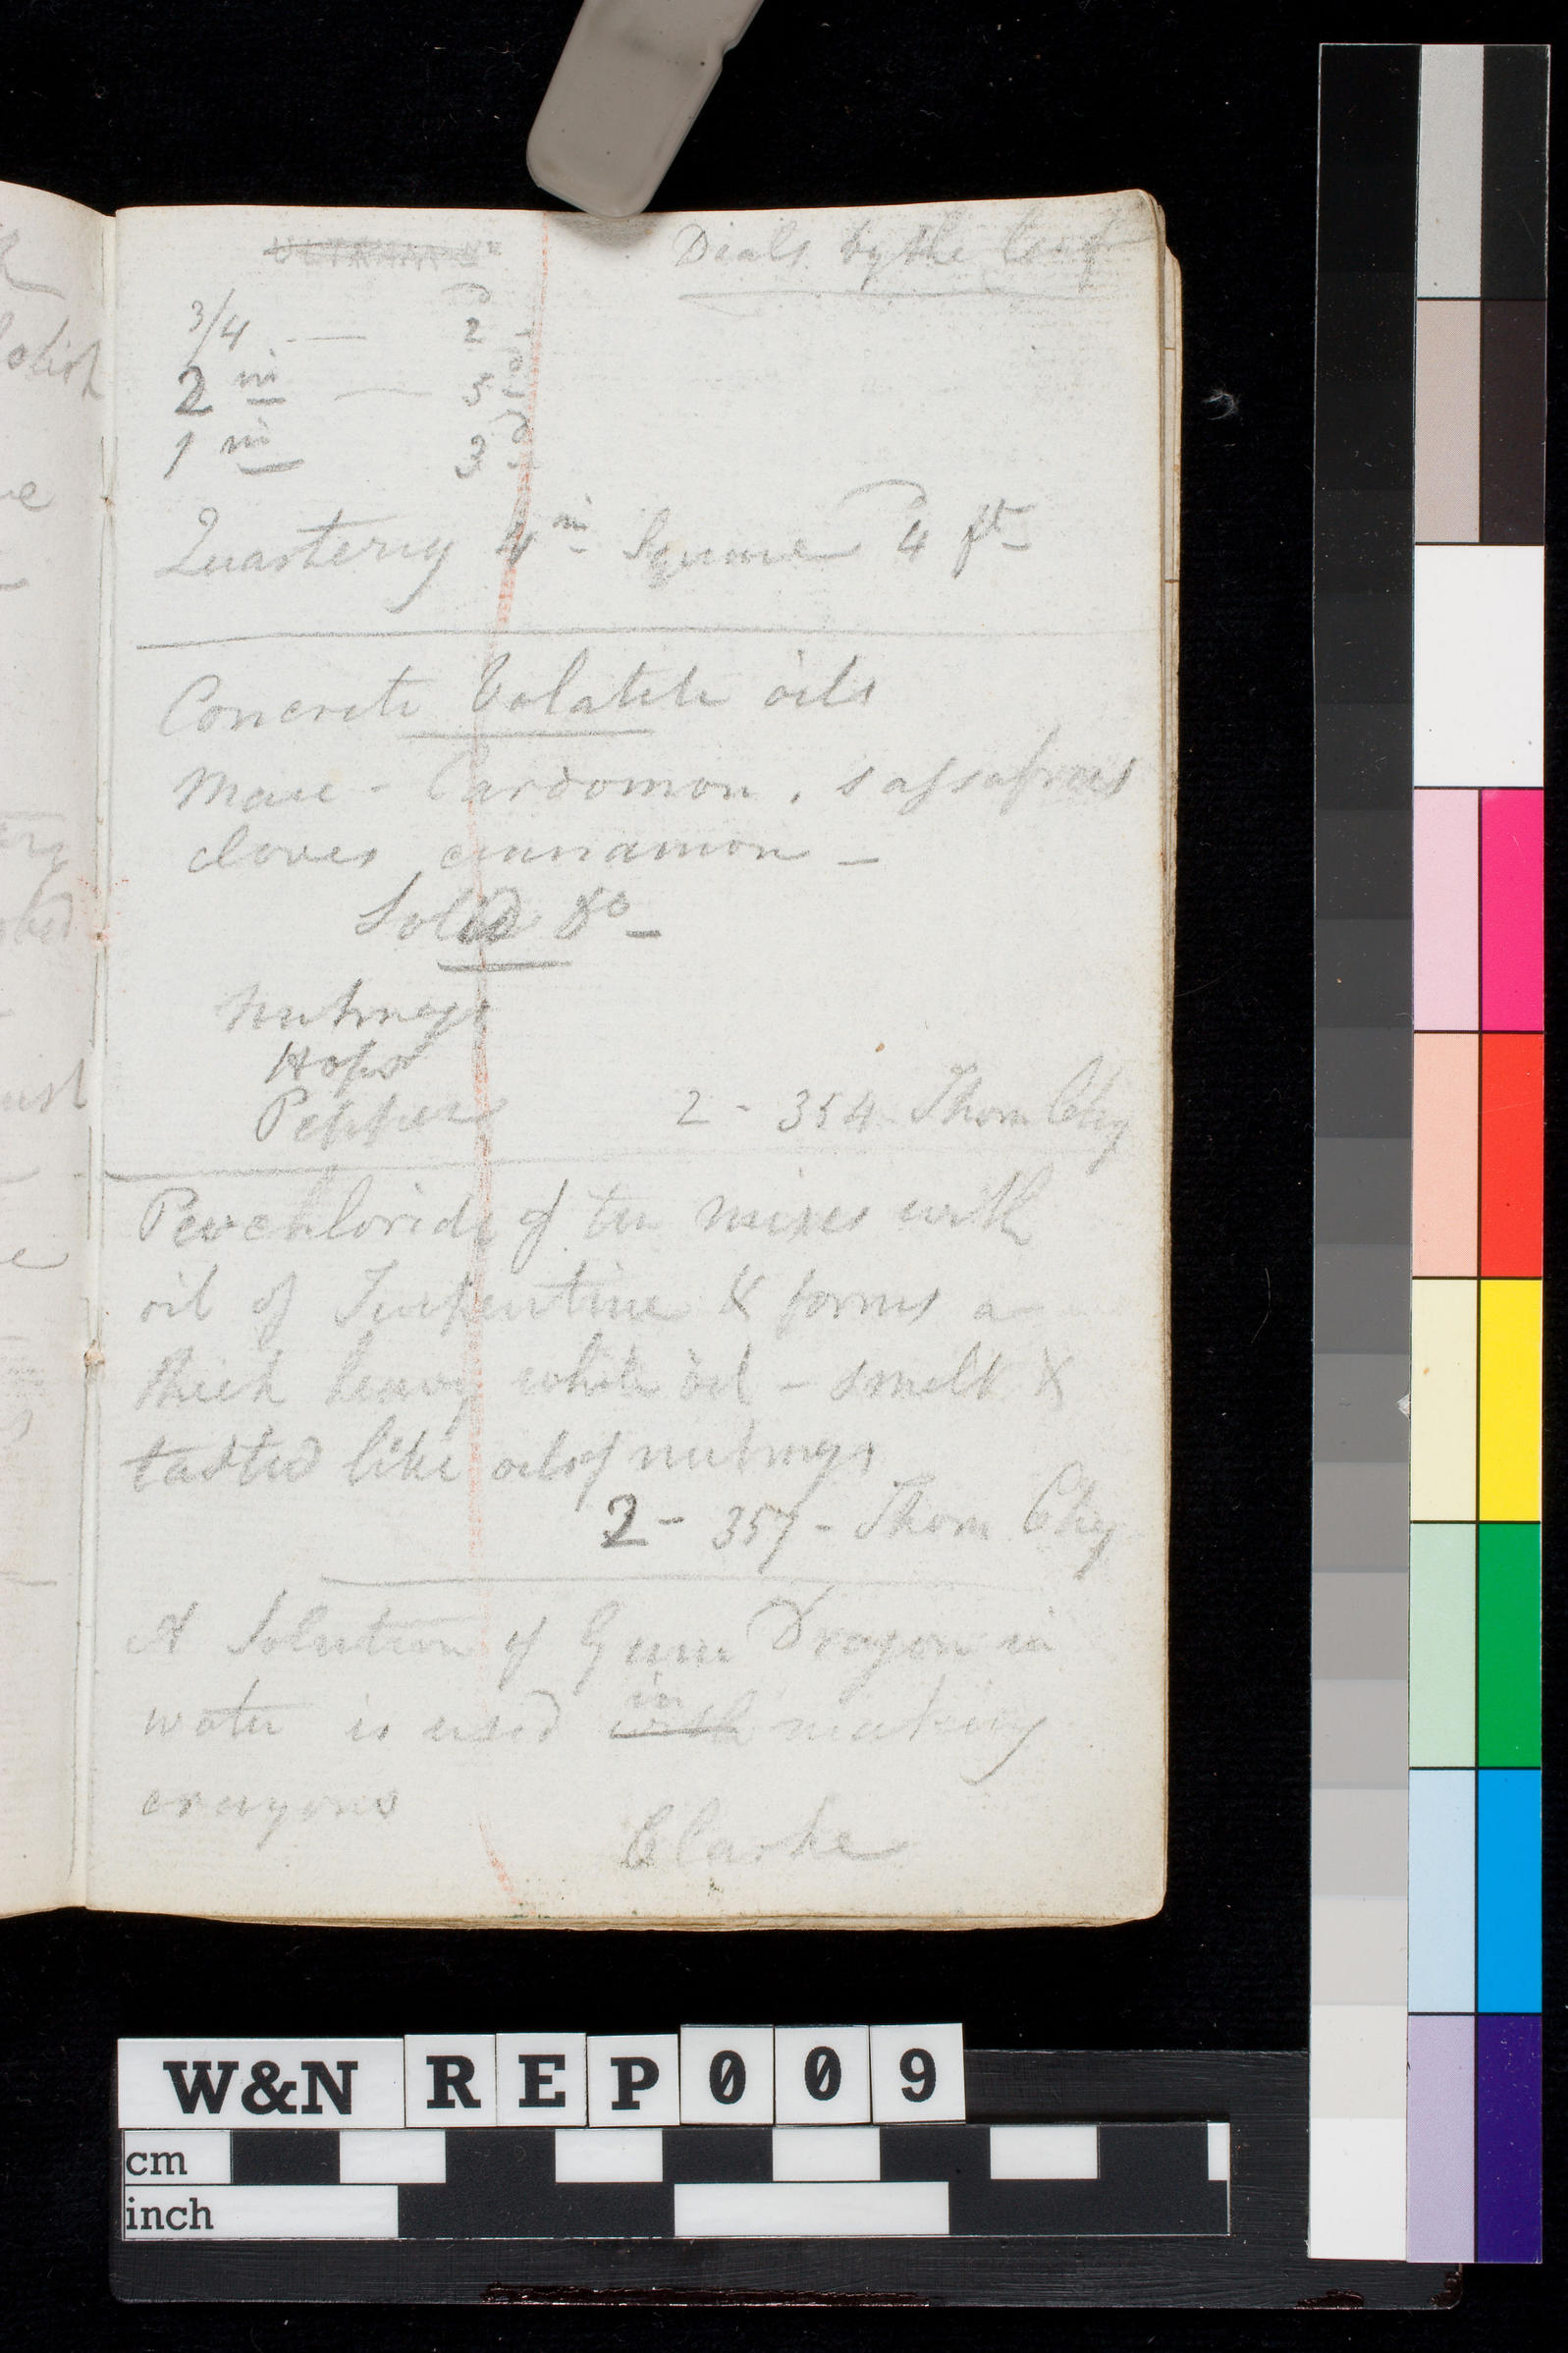 Deals by the
3/4 — 2 -
2 in — 5 d
1 in 3 d
Quartering 4 in Square 4 ft
Concrete Volatile oils
Mace - Cardomon. sassafras
cloves cinnamon -
Solid do -
Nutmegs
Hops
Pepper 2 - 354 Thom Chy
Perchloride of tin mixes with
oil of Turpentine & forms a
thick heavy white oil - smelt &
tasted like oils of nutmegs
2 - 357 - Thom Chy
A Solution of Gum Dragon in
water is used with in making
crayons
Clarke
W&N REP009
cm
inch